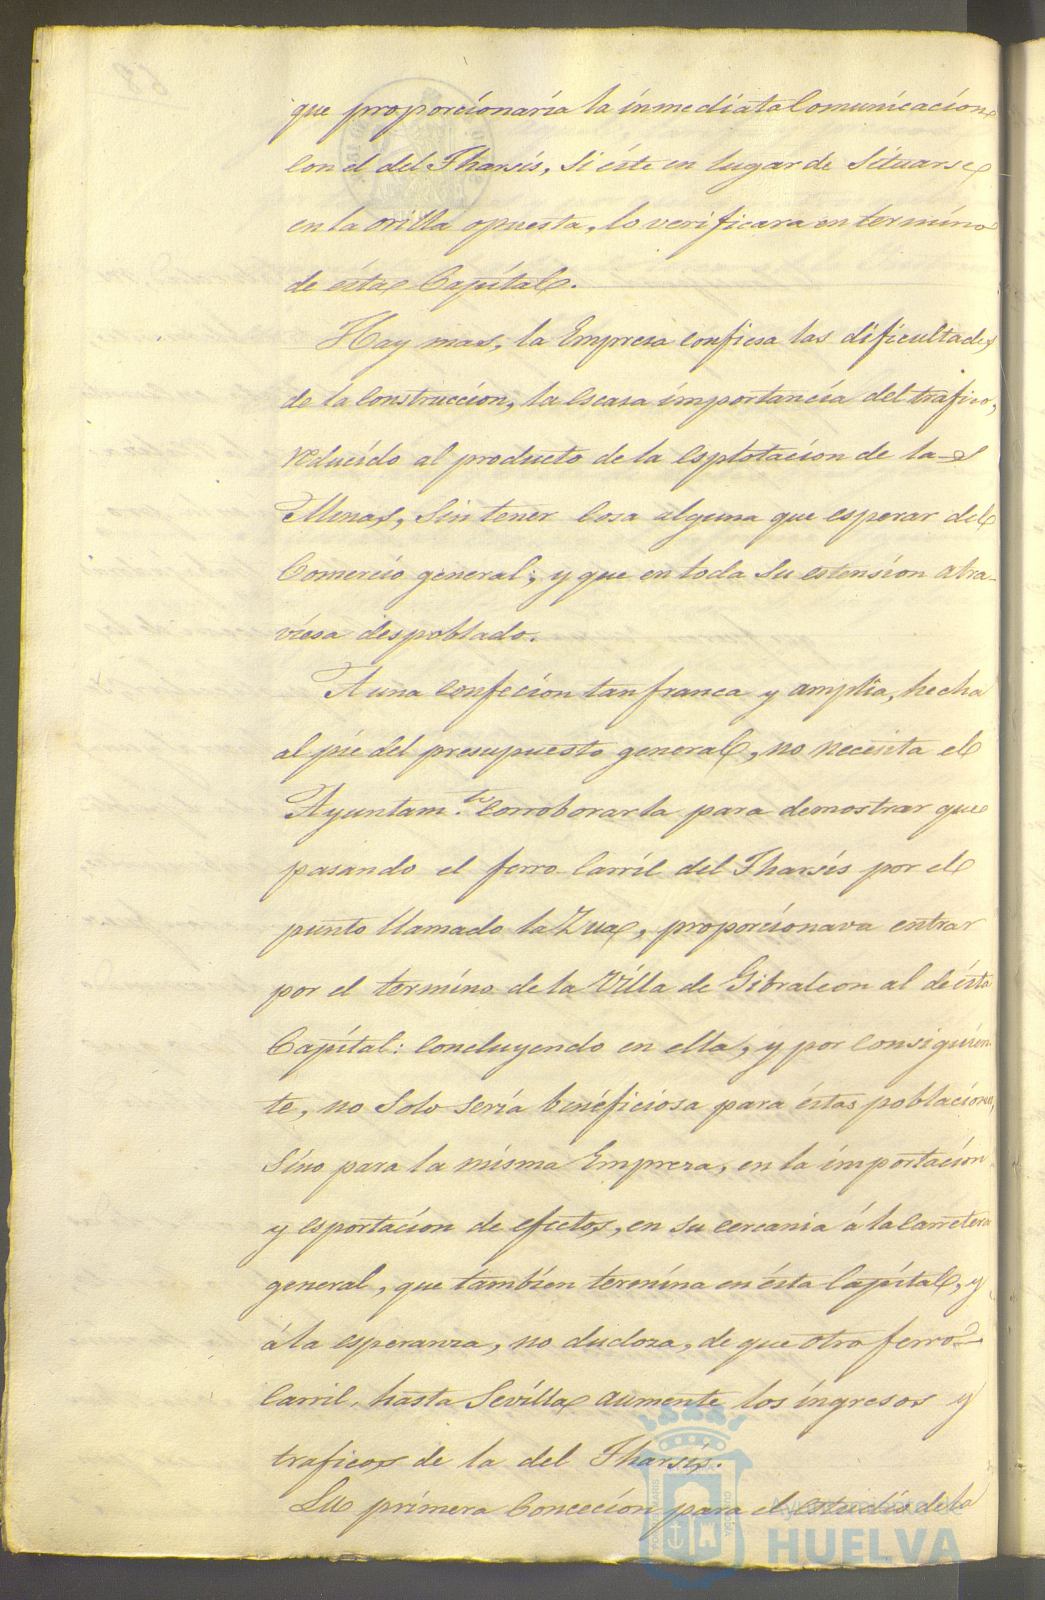 que proporcionaria la inmediata Comunicacion
con el del Tharsis, si éste en lugar de situarse
en la orilla opuesta, lo verificara en término
de ésta Capital.
Hay mas, la Empresa confiesa las dificultades
de la construccion, la escasa importancia del trafico,
reducido al producto de la esplotacion de las
Minas, sin tener cosa alguna que esperar del
Comercio general; y que en toda su estension atra-
viesa despoblado.
A una confecion tan franca y amplia, hecha
al pie del presupuesto general, no necesita el
Ayuntam.to corroborarla para demostrar que
pasando el ferro-Carril del Tharsis por el
punto llamado la Zua, proporcionava entrar
por el término de la Villa de Gibraleon al de ésta
Capital: concluyendo en ella, y por consiguien
te, no solo sería beneficiosa para éstas poblaciones,
sino para la misma Empresa, en la importacion
y esportacion de efectos, en su cercania á la Carretera
general, que tambien termina en ésta Capital, y
á la esperanza, no dudosa, de que otro ferro-
Carril, hasta Sevilla aumente los ingresos y
traficos de la del Tharsis.
La primera Concecion para el estudio de la
Ayuntamiento de
HUELVA